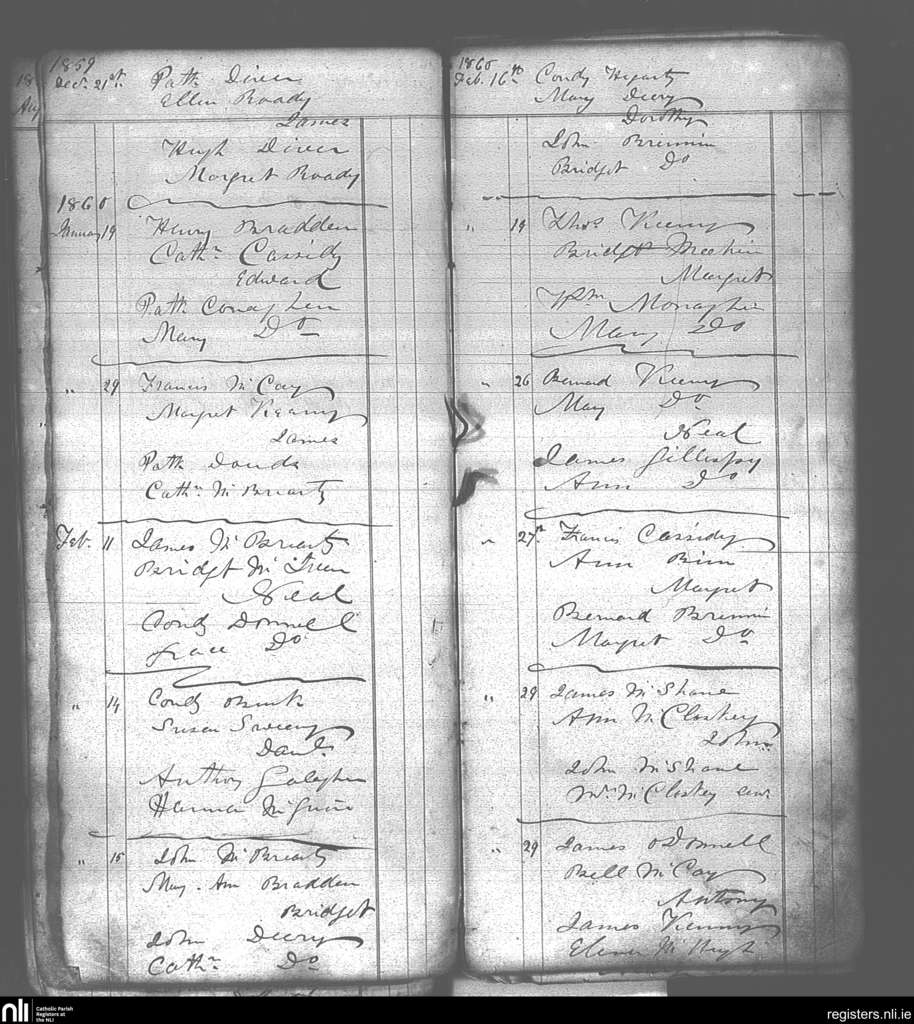 1859
Decr. 21st. Patk. Diver
Ellen Roady
James
Hugh Diver
Margret Roady
1860
January 19 Henry Bradden
Cathn. Cassidy
Edward
Patk. Conaghen
Mary Do
" 29 Francis McCay
Margret Kearny
James
Patk. Douds
Cathn. McBriarty
Feb. 11 James McBriarty
Bridgt Mc
Neal
Condy Donnell
Grace Do
" 14 Condy
Susan Sweeny
Danl.
Anthony Galagher
Hannah
" 15 John McBriarty
Mary. Ann Bradden
Bridget
John Deery
Cathn. Do
1860
Feb. 16th Condy Hegarty
Mary Deery
Dorothy
John Brennin
Bridget Do
" 19 Thos. Keeny
Bridgt Meehin
Margret
Wm Monaghin
Mary Do
" 26 Bernard Keeny
Mary Do
Neal
James Gillespy
Ann Do
" 27th Francis Cassidy
Ann
Margret
Bernard Brennin
Margret Do
" 29 James McShane
Ann McCloskey
John
John McShane
McCloskey
" 29 James ODonnell
Bell McCay
Antony
James Kenny
Elenor McHugh
nli Catholic Parish
Registers at
the NLI
registers.nli.ie